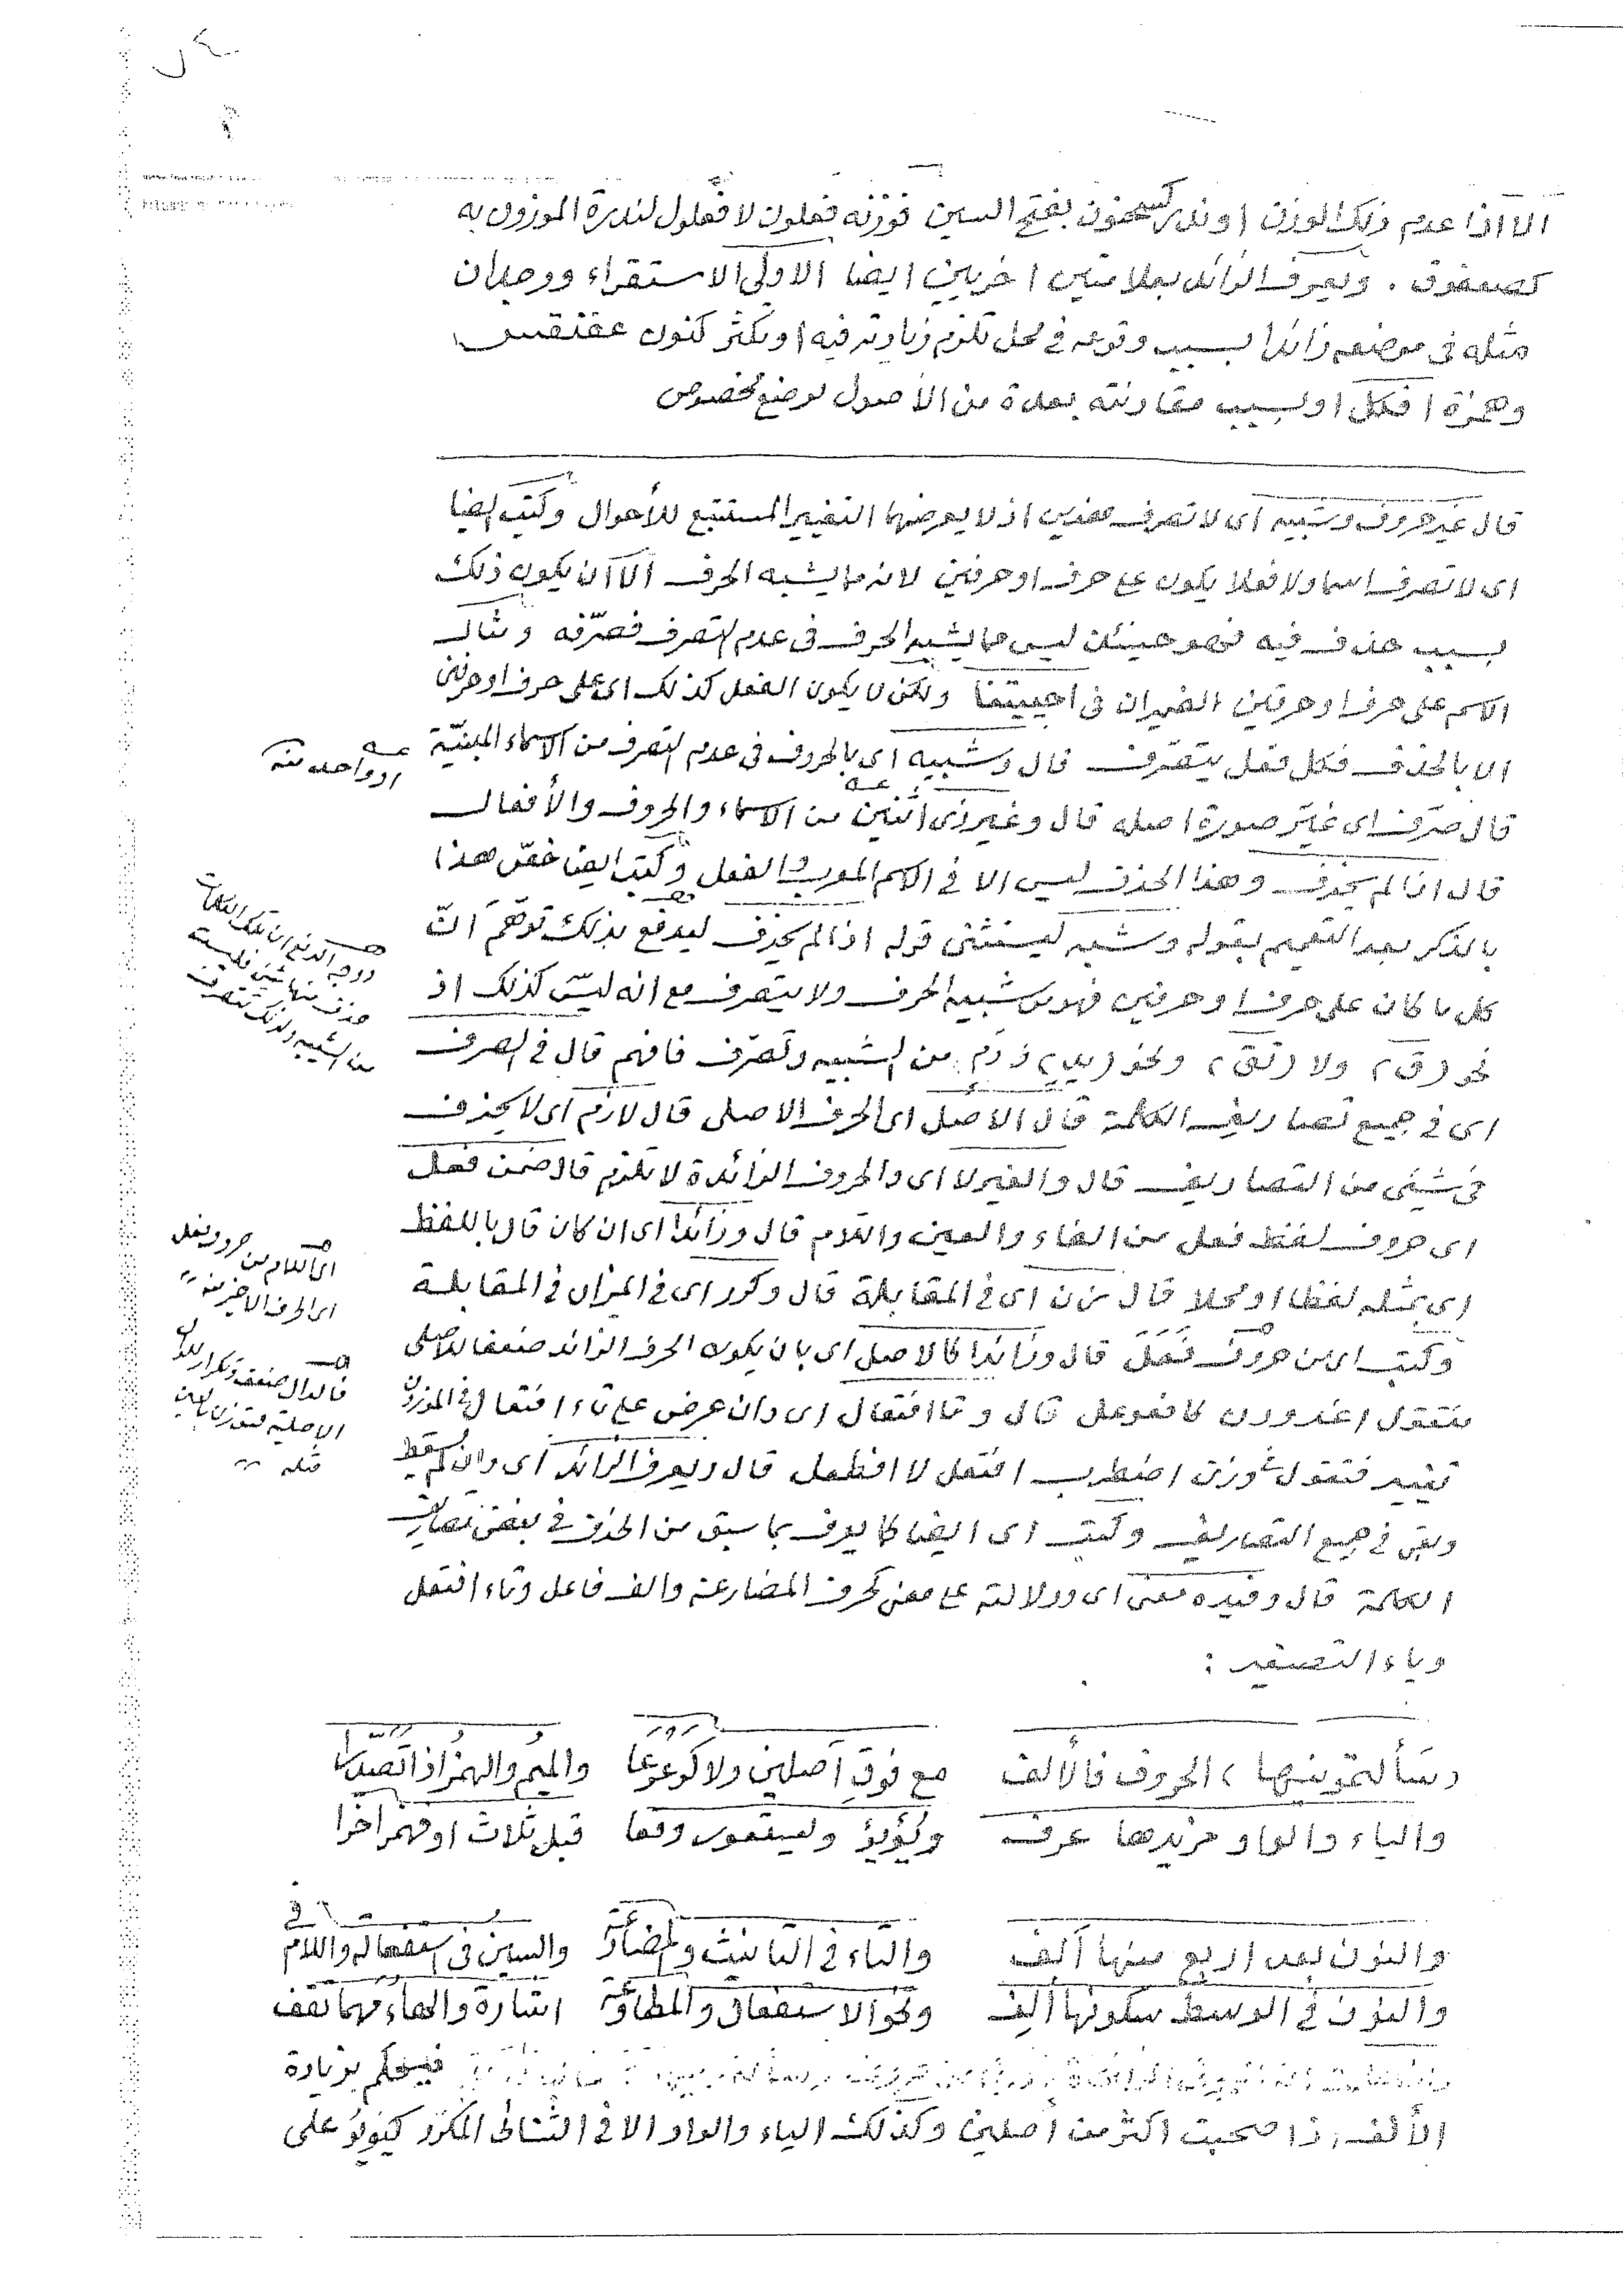 الا اذا عدم ذلك الوزن او ندر كسمحنون بفتح السين فوزنه فعلون لا فعلول لندرة الموزون به
كصعفوق . ويعرف الزائد بعلامتين اخريين ايضا الاولى الاستقراء ووجدان
مثله فى موضعه زائدا بسبب وقوعه فى محل تلزم زيادته فيه او تكثر كنون عقنقس
وهمزة افكل او بسبب مقارنته بعدة من الأصول لوضع مخصوص
قال غير حروف وشبيه اى لا تصرف هذين اذ لا يعرضهما التغيير المستتبع للأحوال وكتب ايضا
اى لا تصرف اسما ولا فعلا يكون على حرف او حرفين لانه مما يشبه الحرف الا ان يكون ذلك
بسبب حذف فيه فهو حينئذ ليس مما يشبه الحرف فى عدم التصرف فصرّفه ومثال
الاسم على حرف او حرفين الضميران فى اجيبتنا ولكن لا يكون الفعل كذلك اى على حرف او حرفين
الا بالحذف فكل فعل يتصرف قال وشبيه اى بالحروف فى عدم التصرف من الاسماء المبنيّة
او واحد منه
قال صرّف اى غيّر صورة اصله قال وغير ذى اثنين من الاسماء والحروف والأفعال
قال اذا لم يحذف وهذا الحذف ليس الا فى الاسم المعرب والفعل وكتب ايضا خصّ هذا
بالذكر بعد التعميم بقوله وشبه ليستثنى قوله اذا لم يحذف ليدفع بذلك توهّم انّ
كل ما كان على حرف او حرفين فهو من شبيه الحرف ولا يتصرف مع انه ليس كذلك اذ
ووجه الدفع ان تلك الكلمات
حذف منها شئ فليست
من الشبيه ولذلك تتصرف
نحو (ق) ولا (تق) ونحو (يد) و دم من الشبيه وتصرّف فافهم قال فى الصرف
اى فى جميع تصاريف الكلمة قال الاصل اى الحرف الاصلى قال لازم اى لا يحذف
فى شئ من التصاريف قال والغير لا اى والحروف الزائدة لا تلزم قال ضمن فعل
اى حروف لفظ فعل من الفاء والعين واللام قال وزائدا اى ان كان قال باللفظ
اى بمثله لفظا او محلا قال زن اى فى المقابلة قال وكرر اى فى الميزان فى المقابلة
اى اللام من حروف فعل
اى الحرف الاخير منه
وكتب اى من حروف فَعَلَ قال وزائدا كالاصل اى بان يكون الحرف الزائد ضعفا للاصلى
فتقول اغدودن كافعوعل قال وتا افتعال اى وان عرض على تاء افتعال فى الموزون
فالدال ضعف وتكرار للدال
الاصلية فتوزن بالعين
مثله
تغيير فتقول وزن اضطرب افتعل لا افطعل قال ويعرف الزائد اى وان لم يسقط
وبقى فى جميع التصاريف وكتب اى ايضا كما يعرف بما سبق من الحذف فى بعض تصاريف
الكلمة قال وفيده معنى اى ودلالته على معنى كحرف المضارعة والف فاعل وتاء افتعل
وياء التصغير :
(سألتمونيها) الحروف فالألف مع فوقِ أصلين ولا كوعوعا والميم والهمز اذا تصدرا
والياء والواو مزيدها عرف ويُؤيُؤ ويستعور وقعا قبل ثلاث او فهمز اخرا
والنون بعد اربع منها ألف والتاء فى التانيث والمضارعة والسين فى استفعاله واللام فى
والنون فى الوسط سكونها ألف ونحو الاستفعال والمطاوعة اشارة والهاء مهما تقف
فيحكم بزيادة
الألف اذا صحبت اكثر من أصلين وكذلك الياء والواو الا فى الثنائى المكرر كيؤيؤ على